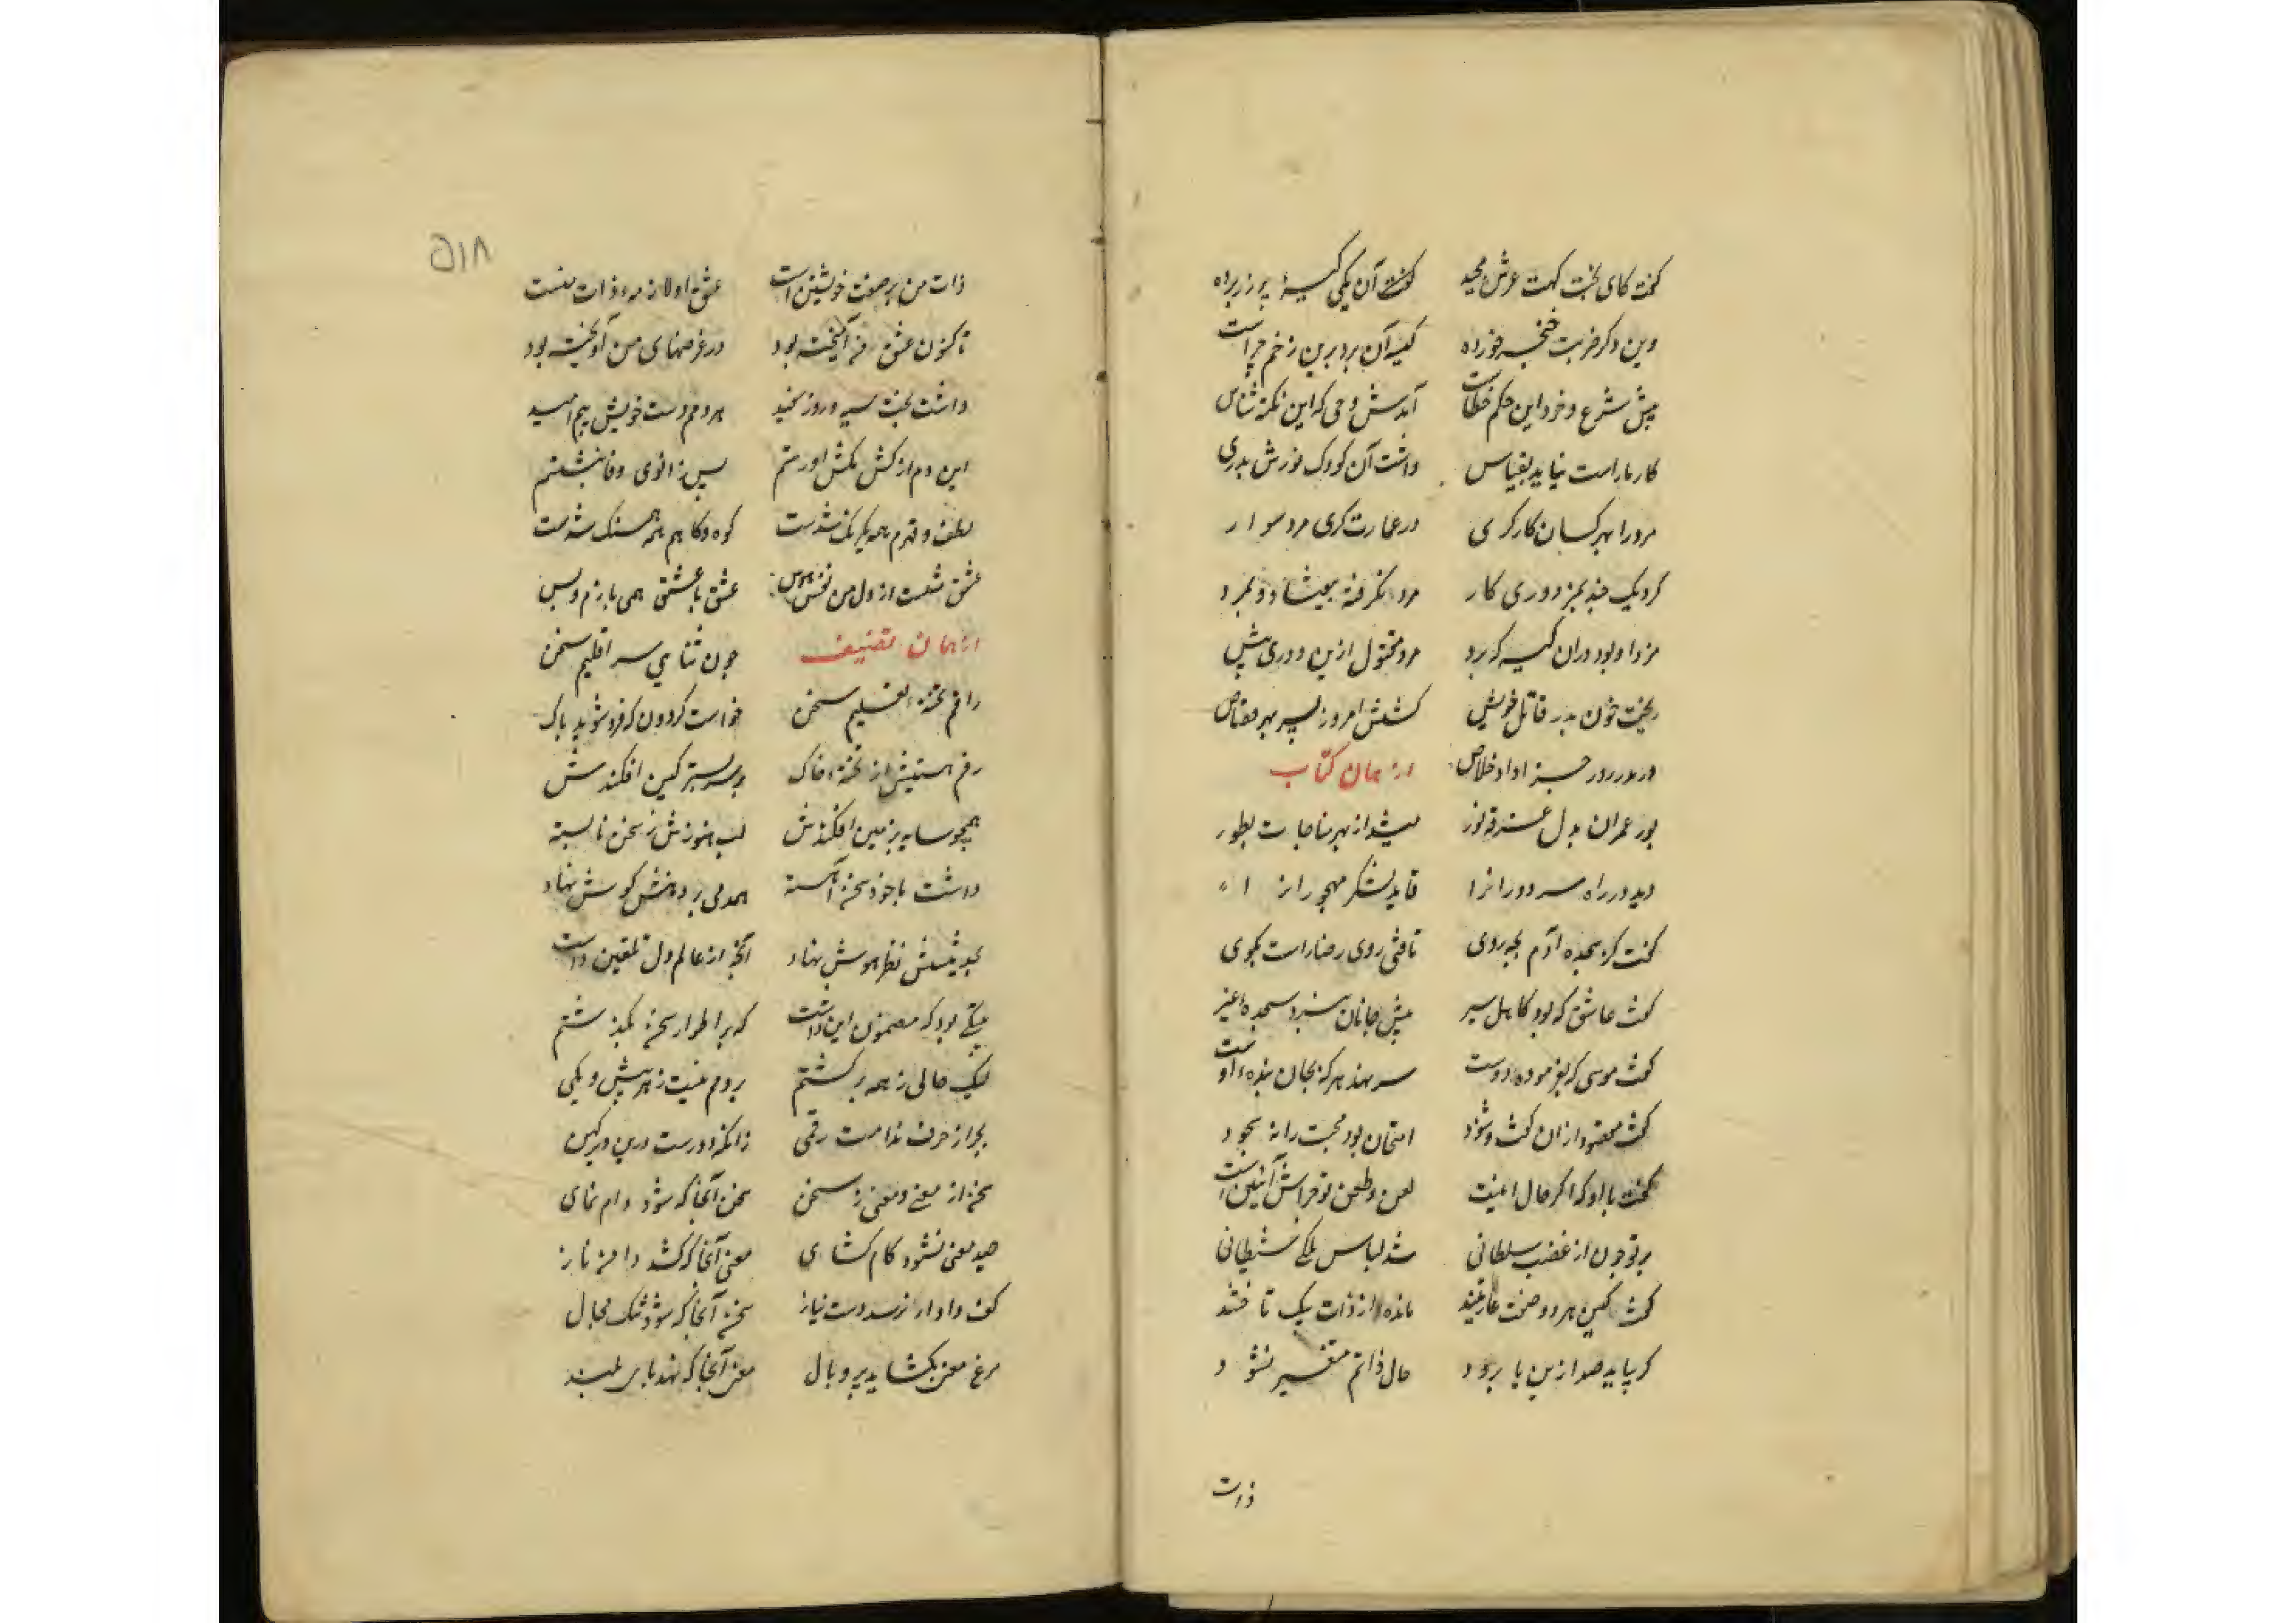 گفت کای تخت گهت عرش مجید گفت آن یکی کیسهٔ پر زر برده
وین دگر ضربت خنجر خورده کیسه آن برد برین زخم چراست
پیش شرع و خرد این حکم خطاست آمدش وحی که این نکته شناس
کار ما راست نیاید بقیاس داشت آن کودک نورس پدری
مرو را بهر کسان کارگری در عمارت گری مرد سوار
کرد یک چند بمزدوری کار مزد نگرفته بیفتاد و بمرد
مزد او بود در آن کیسه که برد مرد مقتول ازین دوری پیش
ریخت خون پدر قاتل خویش کشتش امروز پسر بهر قصاص
خلاص از همان کتاب
پور عمران بدل غرقه نور میشد از بهر مناجات بطور
دید در راه سر دورانرا قاید لشکر مهجورانرا
گفت کز سجده آدم بچه روی تافتی روی رضا راست بگوی
گفت عاشق که بود کامل سیر پیش جانان نبرد سجده غیر
گفت موسی که بفرموده دوست سر نهد هر که بجان بنده اوست
گفت مقصود از آن گفت و شنود امتحان بود محبت را نه سجود
گفت با او که اگر حال اینست لعن و طعن تو چراش آئین است
بر تو چون از غضب سلطانی شد لباس ملکی شیطانی
گفت کین هر دو صفت عاریتند مانده از ذات یک ناحیتند
گر بیاید صد ازین یا برود حال ذاتم متغیر نشود
ذات
۵۱۸
ذات من بر صفت خویشتن است عشق او لازمه ذات منست
تاکنون عشق من آمیخته بود در غرضهای من آویخته بود
داشت بخت سیه و روز سفید هر دم دست خوش بیم امید
این دم از کشمکش او رستم پس زانوی وفا بنشستم
لطف و قهرم همه یکرنگ شدست کوه و کاهم همه همسنگ شدست
عشق شست از دل من نقش هوس عشق با عشق همی بازم و بس
از همان تصنیف چون سنایی سر اقلیم سخن
راقم تخته تعلیم سخن خواست گردون که فرو شوید پاک
رقم هستیش از تخته خاک بر سر بستر کین افکندش
همچو سایه بزمین افکندش لب هنوزش ز سخن نابسته
داشت با خود سخن آهسته همدمی بر دهنش گوش نهاد
نهاد آنچه از عالم دل تلقین داشت
بیتی بود که مضمون این داشت که بر اطوار سخن بگذشتم
لیک حالی ز همه برگشتم بر دلم نیست ز هر بیش و کمی
بجز از حرف ندامت رقمی زانکه دورست درین دیر کهن
سخن از معنی و معنی ز سخن سخن آنجا که شود دام نمای
صید معنی نشود کام گشای معنی آنجا که کشد دامن ناز
کف دادار نرسد دست نیاز سخن آنجا که شود تنگ مجال
مرغ معنی نگشاید پر و بال معنی آنجا که نهد پای بلند